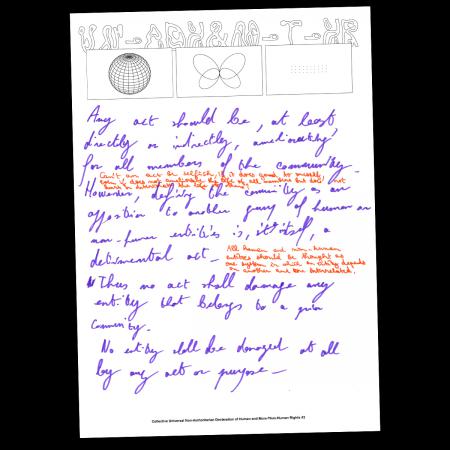 Any act should be, at least
directly or indirectly, ameliorating
for all members of the community.
Can't an act be selfish, if it does good to myself
However, defining the community as an
opposition to another group of human or
non-human entities is, itself, a
detrimental act -
All human and non-human
entities should be thought as
one system in which entity depends
on another and are interrelated.
Thus no act shall damage any
entity that belongs to a given
community.
No entity shall be damaged at all
by any act or purpose -
Collective Universal Non-Authoritarian Declaration of Human and More-Than-Human Rights #2